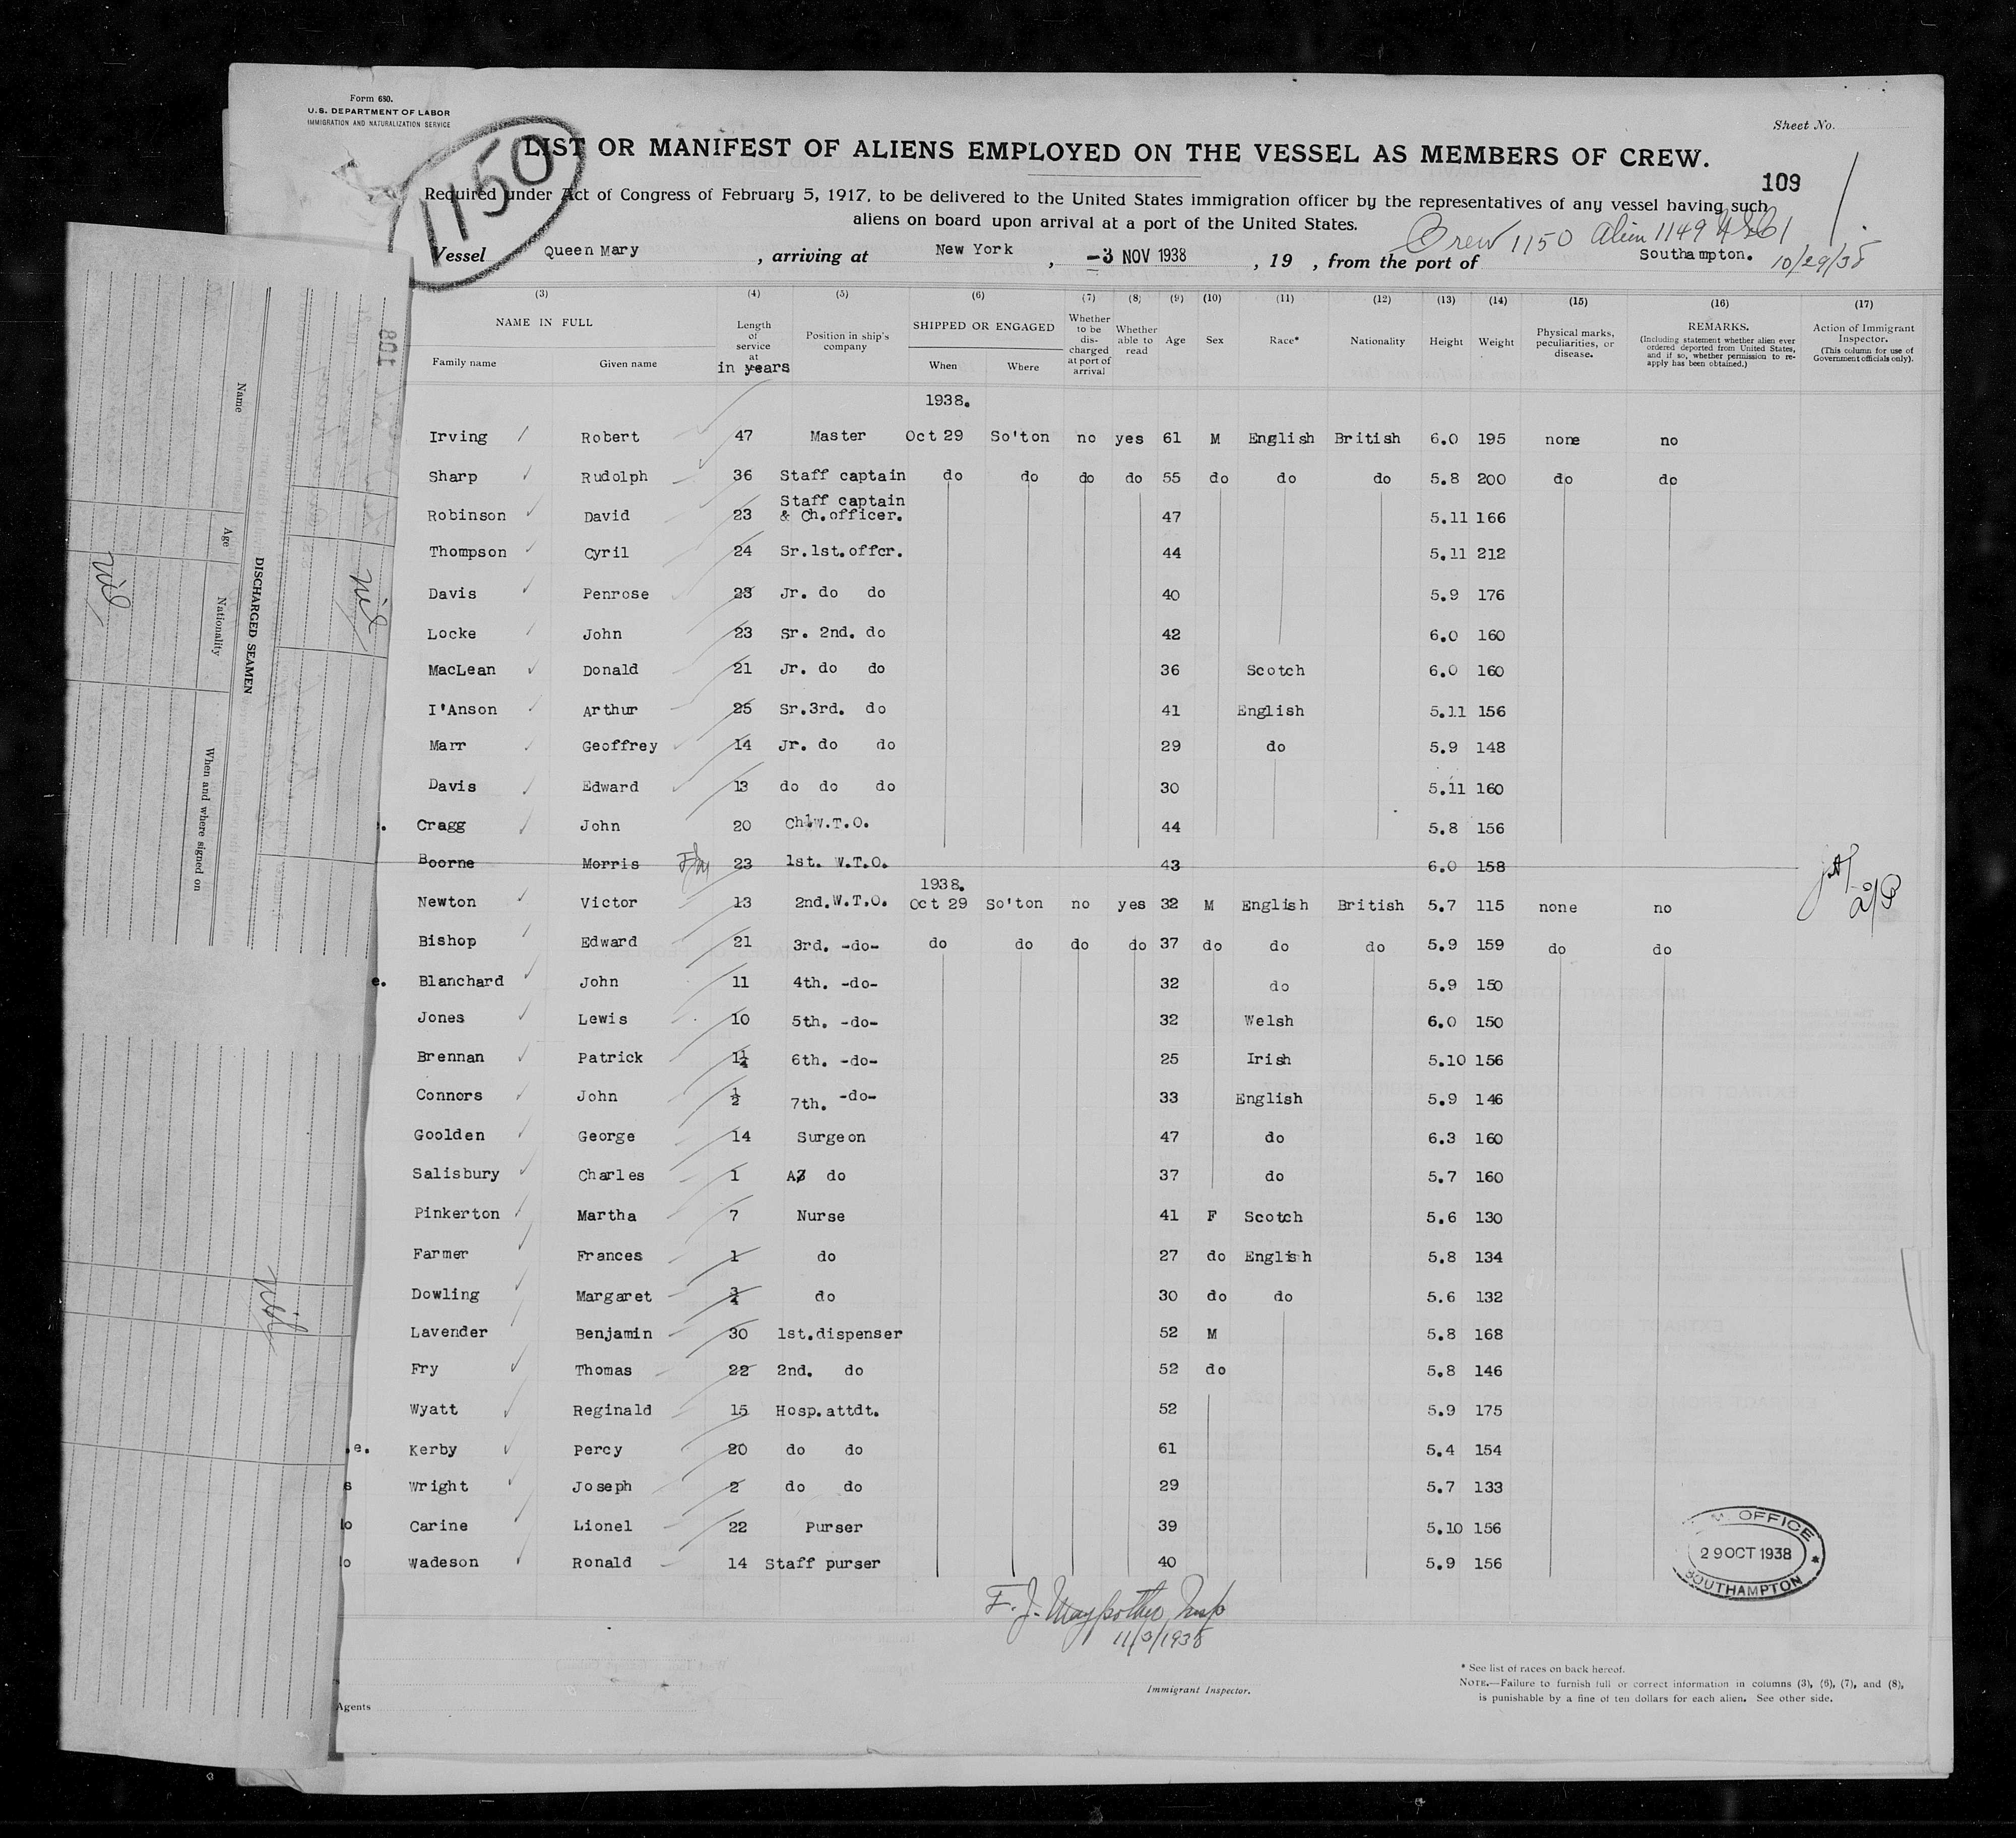 Form 680.
U.S. DEPARTMENT OF LABOR
IMMIGRATION AND NATURALIZATION SERVICE
Sheet No.
1150
LIST OR MANIFEST OF ALIENS EMPLOYED ON THE VESSEL AS MEMBERS OF CREW.
109
Required under Act of Congress of February 5, 1917, to be delivered to the United States immigration officer by the representatives of any vessel having such
aliens on board upon arrival at a port of the United States.
Crew 1150 Alien 1149
Vessel Queen Mary, arriving at New York, -3 NOV 1938, 19 , from the port of Southampton. 10/29/38
(3) (4) (5) (6) (7) (8) (9) (10) (11) (12) (13) (14) (15) (16) (17)
NAME IN FULL
Family name Given name
Length of service at in years
Position in ship's company
SHIPPED OR ENGAGED
When Where
Whether to be discharged at port of arrival
Whether able to read
Age Sex Race* Nationality Height Weight
Physical marks, peculiarities, or disease.
REMARKS.
(Including statement whether alien ever ordered deported from United States, and if so, whether permission to re-apply has been obtained.)
Action of Immigrant Inspector.
(This column for use of Government officials only).
1938.
Irving Robert 47 Master Oct 29 So'ton no yes 61 M English British 6.0 195 none no
Sharp Rudolph 36 Staff captain do do do do 55 do do do 5.8 200 do do
Robinson David 23 Staff captain & Ch.officer. 47 5.11 166
Thompson Cyril 24 Sr.1st.offcr. 44 5.11 212
Davis Penrose 23 Jr. do do 40 5.9 176
Locke John 23 Sr. 2nd. do 42 6.0 160
MacLean Donald 21 Jr. do do 36 Scotch 6.0 160
I'Anson Arthur 25 Sr.3rd. do 41 English 5.11 156
Marr Geoffrey 14 Jr. do do 29 do 5.9 148
Davis Edward 13 do do do 30 5.11 160
Cragg John 20 Ch1W.T.O. 44 5.8 156
Boorne Morris 23 1st. W.T.O. 43 6.0 158
1938.
Newton Victor 13 2nd.W.T.O. Oct 29 So'ton no yes 32 M English British 5.7 115 none no
Bishop Edward 21 3rd. -do- do do do do 37 do do do 5.9 159 do do
e. Blanchard John 11 4th. -do- 32 do 5.9 150
Jones Lewis 10 5th. -do- 32 Welsh 6.0 150
Brennan Patrick 1¼ 6th. -do- 25 Irish 5.10 156
Connors John ½ 7th. -do- 33 English 5.9 146
Goolden George 14 Surgeon 47 do 6.3 160
Salisbury Charles 1 do 37 do 5.7 160
Pinkerton Martha 7 Nurse 41 F Scotch 5.6 130
Farmer Frances 1 do 27 do English 5.8 134
Dowling Margaret ¾ do 30 do do 5.6 132
Lavender Benjamin 30 1st.dispenser 52 M 5.8 168
Fry Thomas 22 2nd. do 52 do 5.8 146
Wyatt Reginald 15 Hosp.attdt. 52 5.9 175
.e. Kerby Percy 20 do do 61 5.4 154
s Wright Joseph 2 do do 29 5.7 133
lo Carine Lionel 22 Purser 39 5.10 156
lo Wadeson Ronald 14 Staff purser 40 5.9 156
M. OFFICE
29 OCT 1938
SOUTHAMPTON
11/3/1938
Immigrant Inspector.
* See list of races on back hereof.
NOTE.—Failure to furnish full or correct information in columns (3), (6), (7), and (8),
is punishable by a fine of ten dollars for each alien. See other side.
Agents
108
DISCHARGED SEAMEN
Name
Age
Nationality
When and where signed on
nil
nil
nil